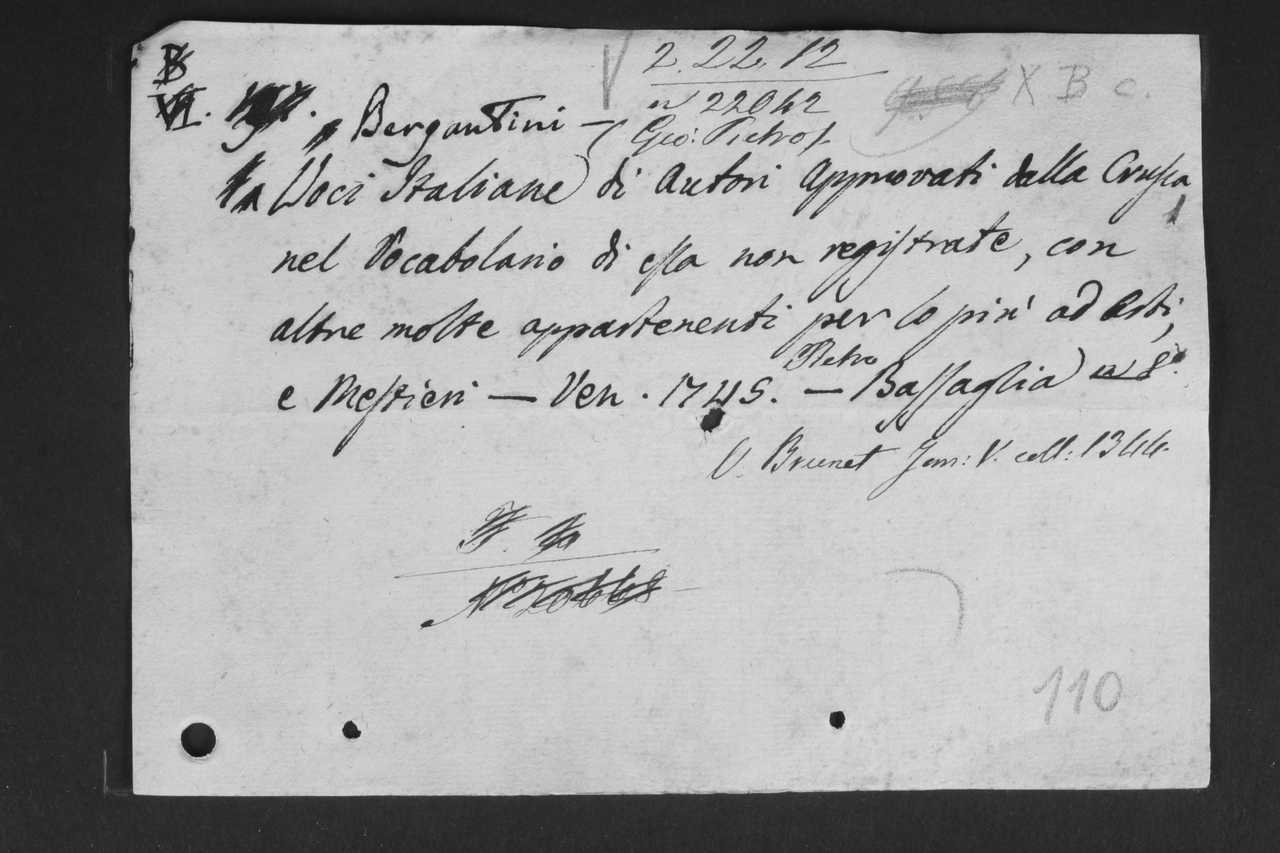 B
VI.
2. 22. 12
n 22042
X B c.
Bergantini — (Gio: Pietro).
Voci Italiane di Autori approvati dalla Crusca,
nel Vocabolario di essa non registrate, con
altre molte appartenenti per lo più ad Arti,
e Mestieri — Ven. 1745. — Pietro Bassaglia in 8.
V. Brunet Tom: V. coll: 1344.
110